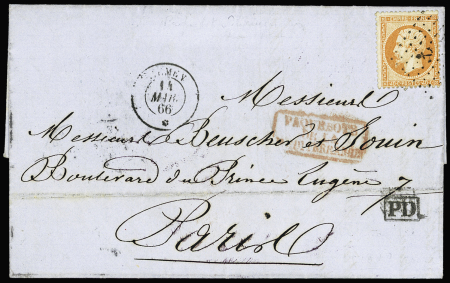 14
MARS
66
Messieurs
Messieurs Beuscher et Gouin
Boulevard du Prince Eugène 7
PD
Paris